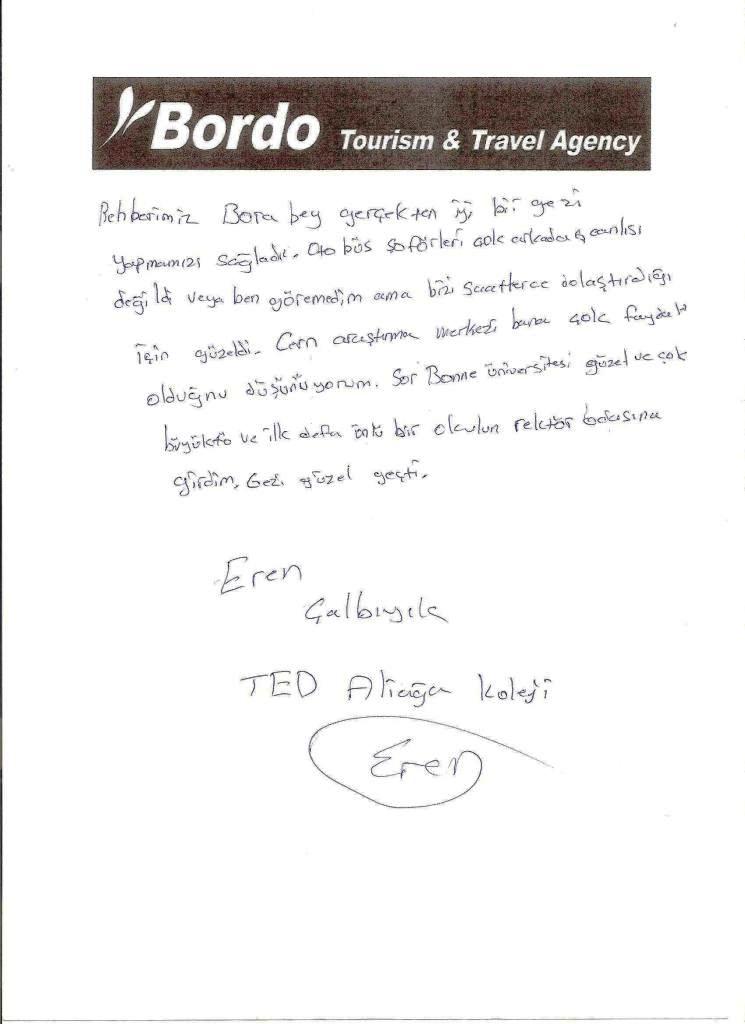 Bordo Tourism & Travel Agency
Rehberimiz Bora bey gerçekten iyi bir gezi
yapmamızı sağladı. Oto büs şoförleri çok arkadaş canlısı
değildi veya ben göremedim ama bizi saatlerce dolaştırdığı
için güzeldi. Cern araştırma merkezi bana çok faydalı
olduğnu düşünüyorum. Sor Bonne üniversitesi güzel ve çok
büyüktü ve ilk defa ünlü bir okulun rektör odasına
girdim. Gezi güzel geçti.
Eren
Çalbıyık
TED Aliağa Koleji
Eren